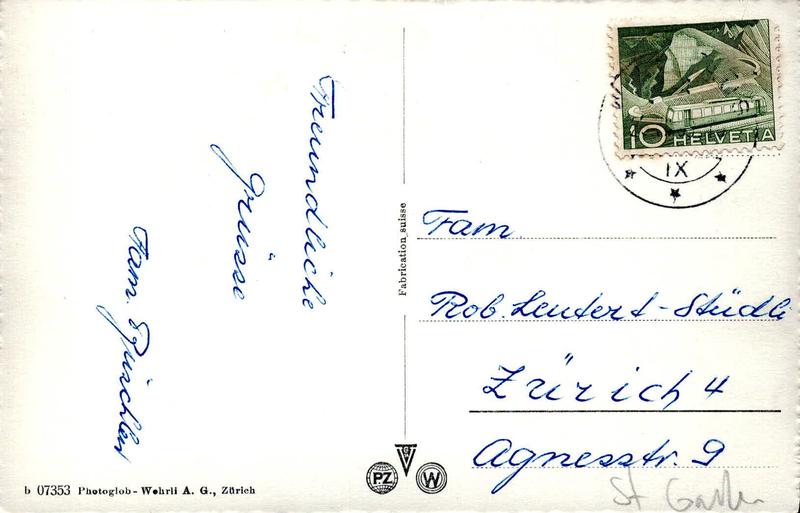 Freundliche
Grüsse
Fam.
Fabrication suisse
10 HELVETIA
IX
Fam.
Rob. Leutert-Stüdli
Zürich 4
Agnesstr. 9
PZ
W
b 07353 Photoglob-Wehrli A. G., Zürich
St